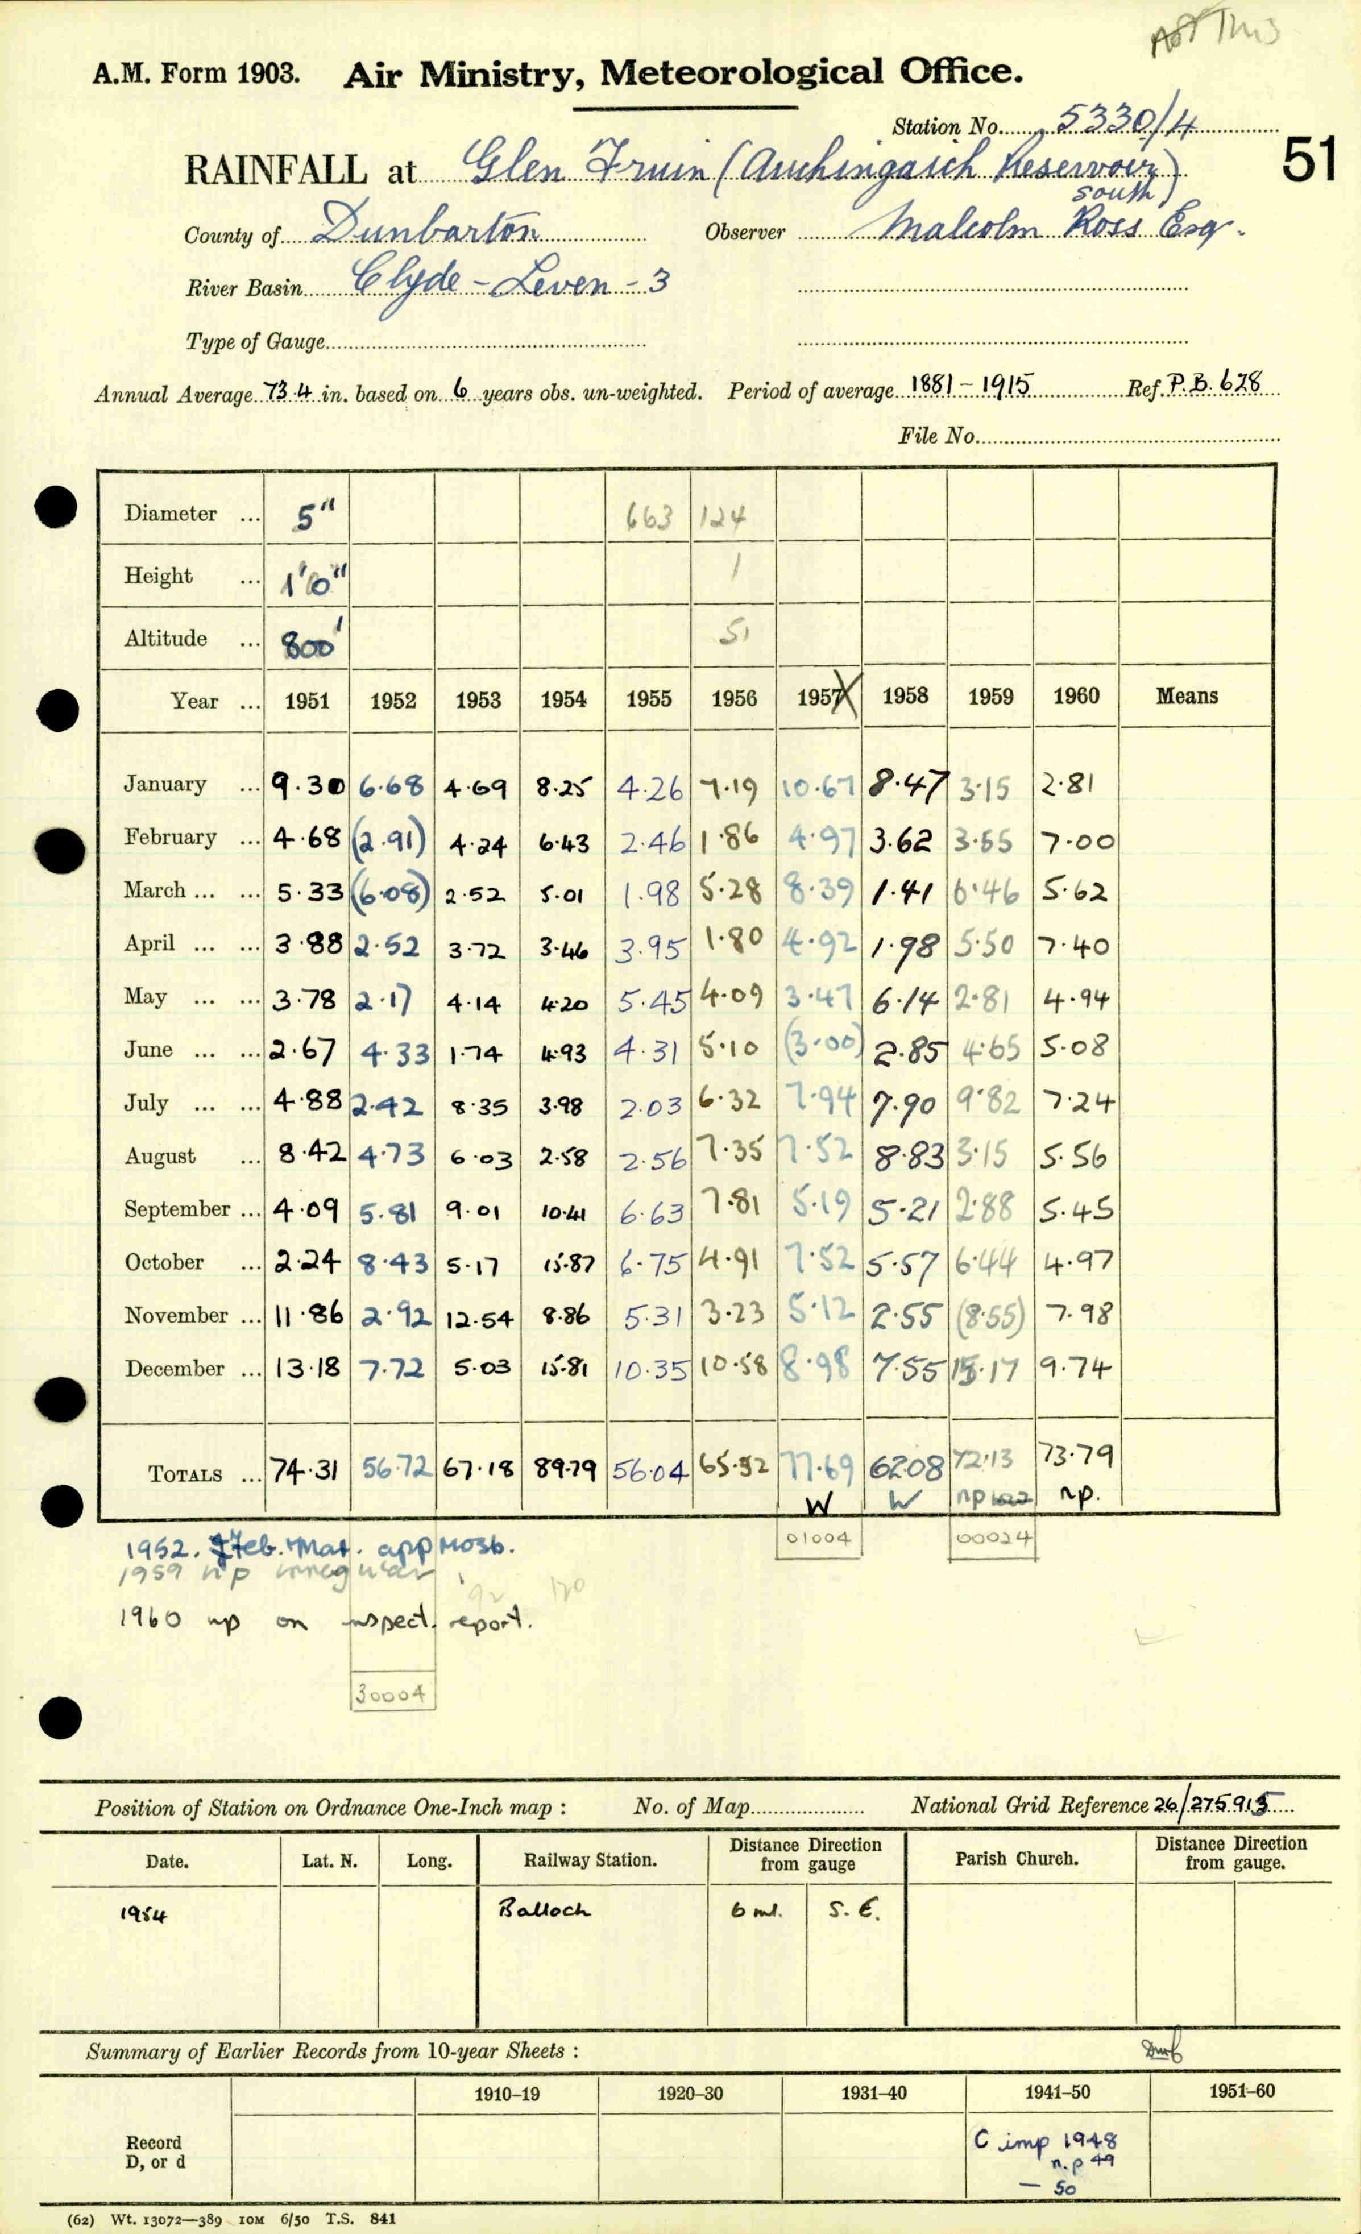 Not This
A.M. Form 1903. Air Ministry, Meteorological Office.
Station No. 5330/4
51
RAINFALL at Glen Fruin (Auchingaich Reservoir South)
County of Dunbarton Observer Malcolm Ross Esq.
River Basin Clyde - Leven - 3
Type of Gauge
Annual Average 73.4 in. based on 6 years obs. un-weighted. Period of average 1881 - 1915 Ref. P.B. 628
File No.
Diameter ... 5" 663 124
Height ... 1'0" 1
Altitude ... 800' 51
Year ... 1951 1952 1953 1954 1955 1956 1957 X 1958 1959 1960 Means
January ... 9.30 6.68 4.69 8.25 4.26 7.19 10.67 8.47 3.15 2.81
February ... 4.68 (2.91) 4.24 6.43 2.46 1.86 4.97 3.62 3.55 7.00
March ... ... 5.33 (6.08) 2.52 5.01 1.98 5.28 8.39 1.41 6.46 5.62
April ... ... 3.88 2.52 3.72 3.46 3.95 1.80 4.92 1.98 5.50 7.40
May ... ... 3.78 2.17 4.14 4.20 5.45 4.09 3.47 6.14 2.81 4.94
June ... ... 2.67 4.33 1.74 4.93 4.31 5.10 (3.00) 2.85 4.65 5.08
July ... ... 4.88 2.42 8.35 3.98 2.03 6.32 7.94 7.90 9.82 7.24
August ... 8.42 4.73 6.03 2.58 2.56 7.35 7.52 8.83 3.15 5.56
September ... 4.09 5.81 9.01 10.41 6.63 7.81 5.19 5.21 2.88 5.45
October ... 2.24 8.43 5.17 15.87 6.75 4.91 7.52 5.57 6.44 4.97
November ... 11.86 2.92 12.54 8.86 5.31 3.23 5.12 2.55 (8.55) 7.98
December ... 13.18 7.72 5.03 15.81 10.35 10.58 8.98 7.55 15.17 9.74
TOTALS ... 74.31 56.72 67.18 89.79 56.04 65.52 77.69 62.08 72.13 73.79
W W np np.
01004 00024
1952. Feb. Mar. app Mosb.
1959 np irregular
92 120
1960 np on inspect. report.
30004
Position of Station on Ordnance One-Inch map : No. of Map National Grid Reference 26/275915
Date. Lat. N. Long. Railway Station. Distance Direction from gauge Parish Church. Distance Direction from gauge.
1954 Balloch 6 ml. S. E.
Summary of Earlier Records from 10-year Sheets :
1910–19 1920–30 1931–40 1941–50 1951–60
Record D, or d
C imp 1948
n.p 49
— 50
(62) Wt. 13072—389 10M 6/50 T.S. 841